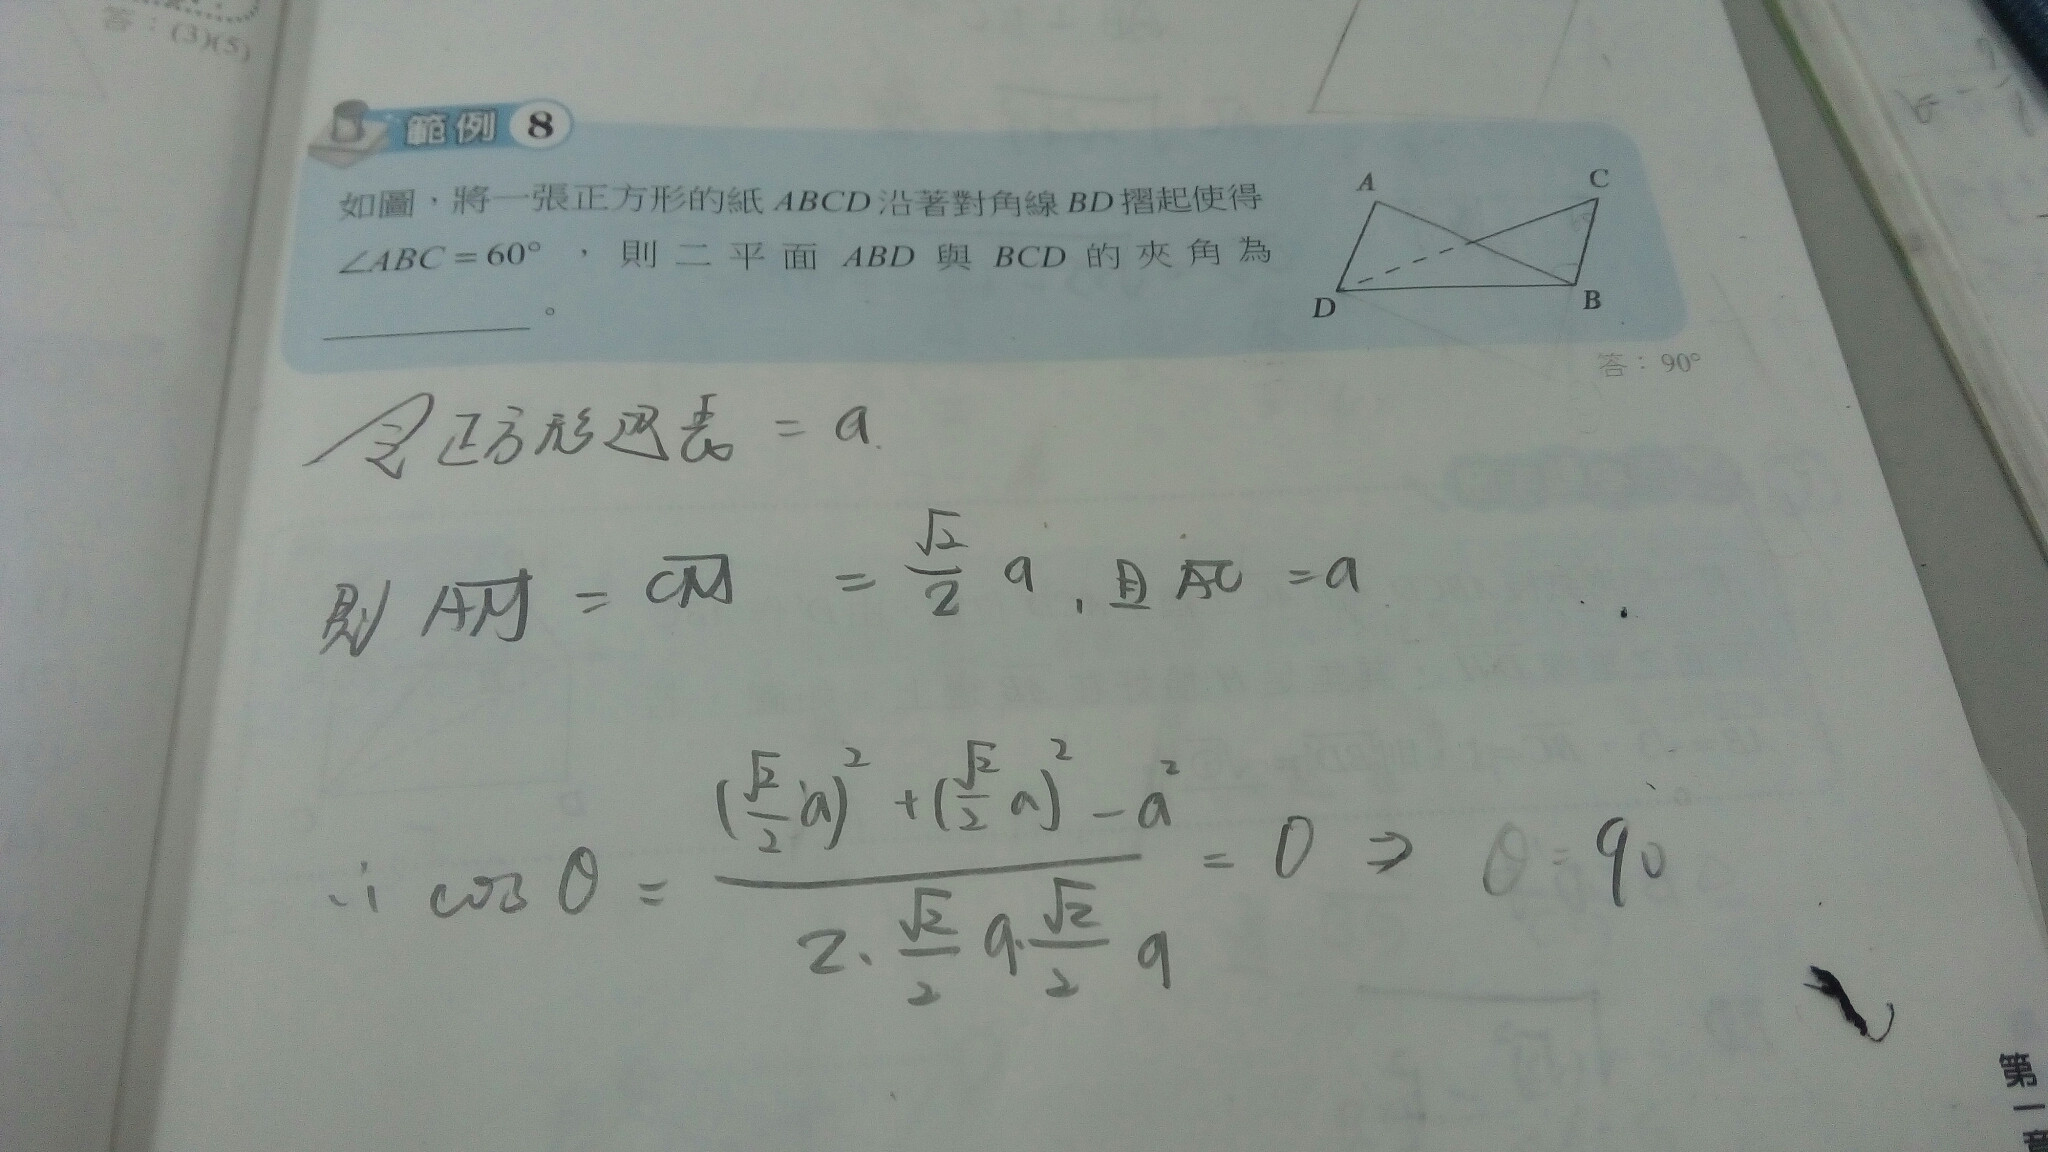 答：(3)(5)
範例 8
如圖，將一張正方形的紙 ABCD 沿著對角線 BD 摺起使得
∠ABC = 60°，則二平面 ABD 與 BCD 的夾角為
______。
A
C
D
B
答：90°
令正方形边長 = a.
則 AM = CM = √2/2 a，且 AC = a
∴ cos θ = ((√2/2 a)² + (√2/2 a)² - a²) / (2·√2/2 a·√2/2 a) = 0 ⇒ θ = 90
第一章